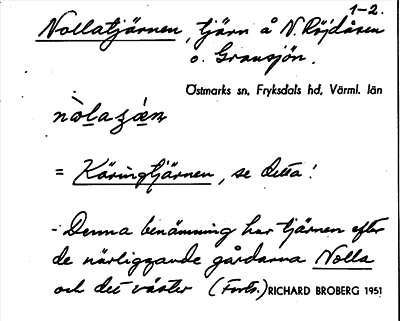 1-2.
Nollatjärnen, tjärn å N. Röjdåsen
o. Gransjön.
Östmarks sn, Fryksdals hd, Värml. län
= Käringtjärnen, se detta!
- Denna benämning har tjärnen efter
de närliggande gårdarna Nolla
och det väster (Forts.) RICHARD BROBERG 1951